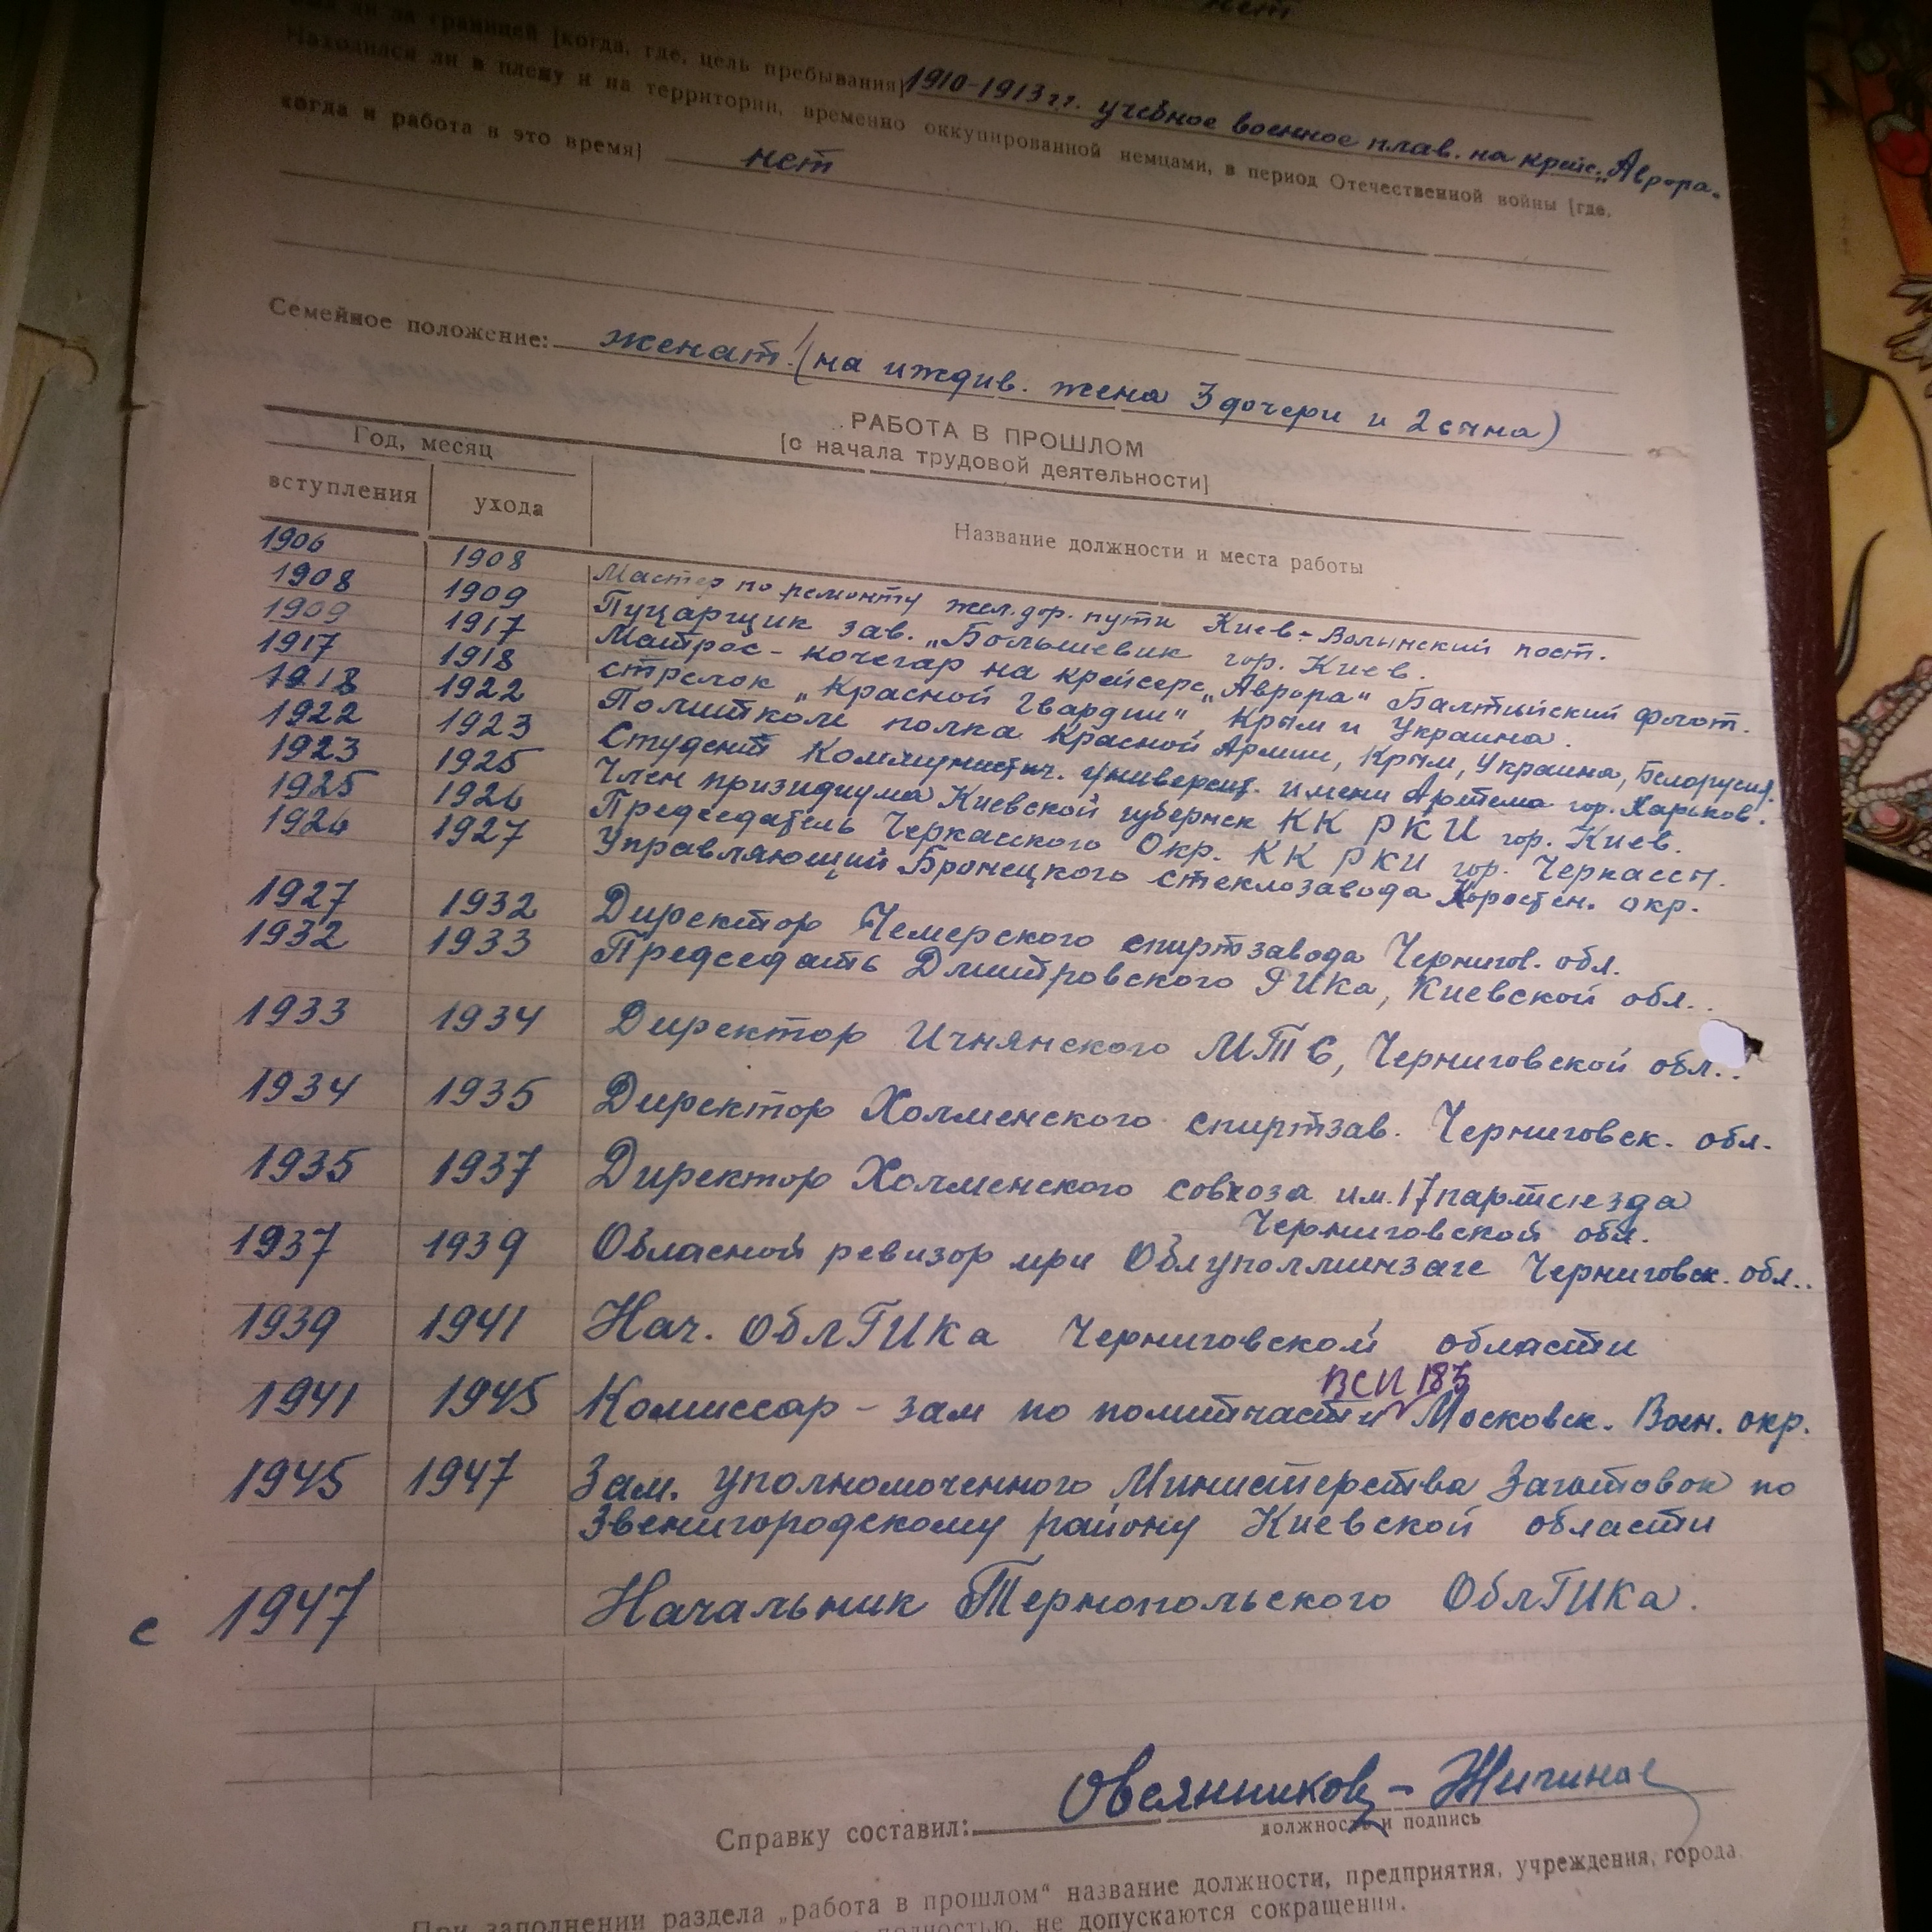 нет
за границей [когда, где, цель пребывания] 1910-1913 гг. учебное военное плав. на крейс. „Аврора.
Находился ли в плену и на территории, временно оккупированной немцами, в период Отечественной войны [где,
когда и работа в это время] нет
Семейное положение: женат. (на иждив. жена 3 дочери и 2 сына)
РАБОТА В ПРОШЛОМ
[с начала трудовой деятельности]
Год, месяц
вступления ухода Название должности и места работы
1906 1908 Мастер по ремонту жел.дор. пути Киев-Волынский пост.
1908 1909 Пуцарщик зав. „Большевик гор. Киев.
1909 1917 Матрос - кочегар на крейсере „Аврора“ Балтийский флот.
1917 1918 стрелок „Красной Гвардии“ Крым и Украина.
1918 1922 Политком полка Красной Армии, Крым, Украина, Белорусия.
1922 1923 Студент Коммунистич. университ. имени Артема гор. Харьков.
1923 1925 Член призидиума Киевской губернск КК РКИ гор. Киев.
1925 1926 Председатель Черкасского Окр. КК РКИ гор. Черкассы.
1926 1927 Управляющий Бронецкого стеклозавода Коростен. окр.
1927 1932 Директор Чемерского спиртзавода Чернигов. обл.
1932 1933 Председать Дмитровского РИКа, Киевской обл..
1933 1934 Директор Ичнянского МТС, Черниговской обл..
1934 1935 Директор Холменского спиртзав. Черниговск. обл.
1935 1937 Директор Холменского совхоза им. 17 партсъезда
Черниговской обл.
1937 1939 Обласной ревизор при Облуполминзаге Черниговск. обл..
1939 1941 Нач. ОблГИКа Черниговской области
ВСП 183
1941 1945 Комиссар - зам по политчасти Московск. Воен. окр.
1945 1947 Зам. уполномоченного Министерства Заготовок по
Звенигородскому району Киевской области
с 1947 Начальник Тернопольского ОблГИКа.
Овсянников - Жигинас
Справку составил:
должность и подпись
При заполнении раздела „работа в прошлом“ название должности, предприятия, учреждения, города
полностью, не допускаются сокращения.